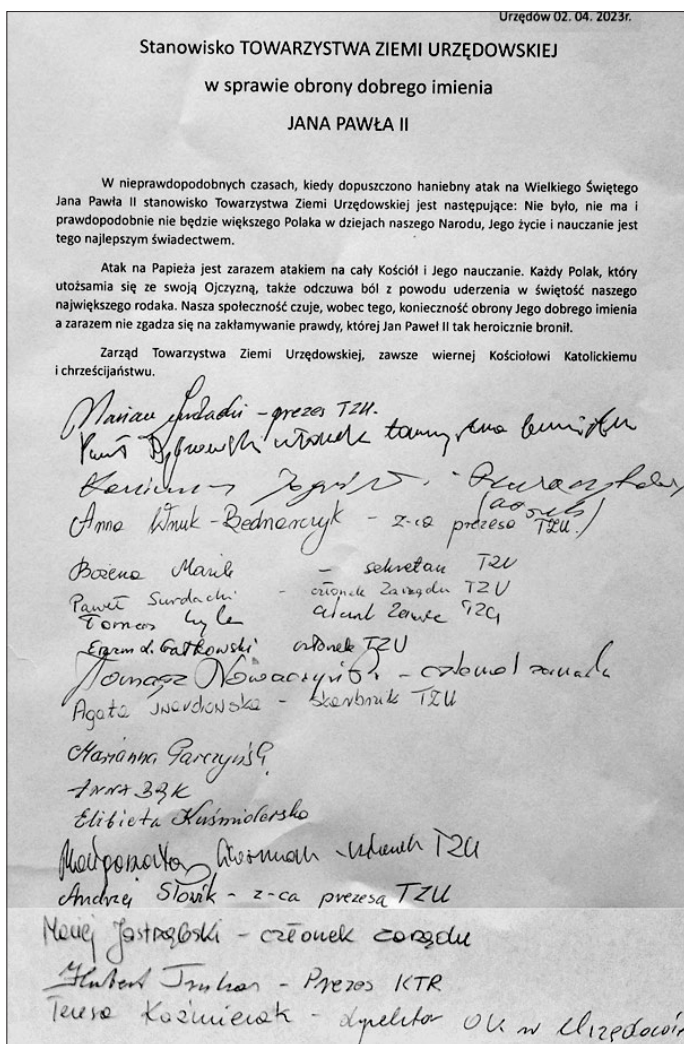 Urzędów 02. 04. 2023r.
Stanowisko TOWARZYSTWA ZIEMI URZĘDOWSKIEJ
w sprawie obrony dobrego imienia
JANA PAWŁA II
W nieprawdopodobnych czasach, kiedy dopuszczono haniebny atak na Wielkiego Świętego
Jana Pawła II stanowisko Towarzystwa Ziemi Urzędowskiej jest następujące: Nie było, nie ma i
prawdopodobnie nie będzie większego Polaka w dziejach naszego Narodu, Jego życie i nauczanie jest
tego najlepszym świadectwem.
Atak na Papieża jest zarazem atakiem na cały Kościół i Jego nauczanie. Każdy Polak, który
utożsamia się ze swoją Ojczyzną, także odczuwa ból z powodu uderzenia w świętość naszego
największego rodaka. Nasza społeczność czuje, wobec tego, konieczność obrony Jego dobrego imienia
a zarazem nie zgadza się na zakłamywanie prawdy, której Jan Paweł II tak heroicznie bronił.
Zarząd Towarzystwa Ziemi Urzędowskiej, zawsze wiernej Kościołowi Katolickiemu
i chrześcijaństwu.
Marian Surdacki - prezes TZU.
członek
Anna Wnuk-Bednarczyk - z-ca prezesa TZU.
Bożena - sekretarz TZU
Paweł Surdacki - członek Zarządu TZU
Tomasz TZU
Gałkowski członek TZU
Tomasz Nowaczyński -
Agata Twardowska - skarbnik TZU
Marianna Parczyńska
ANNA BĄK
Elżbieta Kuśmiderska
Małgorzata - członek TZU
Andrzej Słowik - z-ca prezesa TZU
Maciej Jastrzębski - członek zarządu
Hubert - Prezes KTR
Teresa Kaźmierak - dyrektor OK w Urzędowie